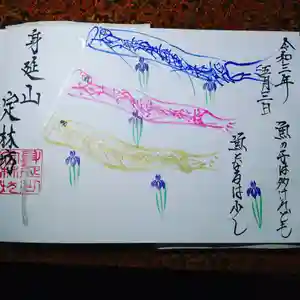 令和三年
五月三日
魚の子は多けれども
魚となるは少し
身延山
定林坊